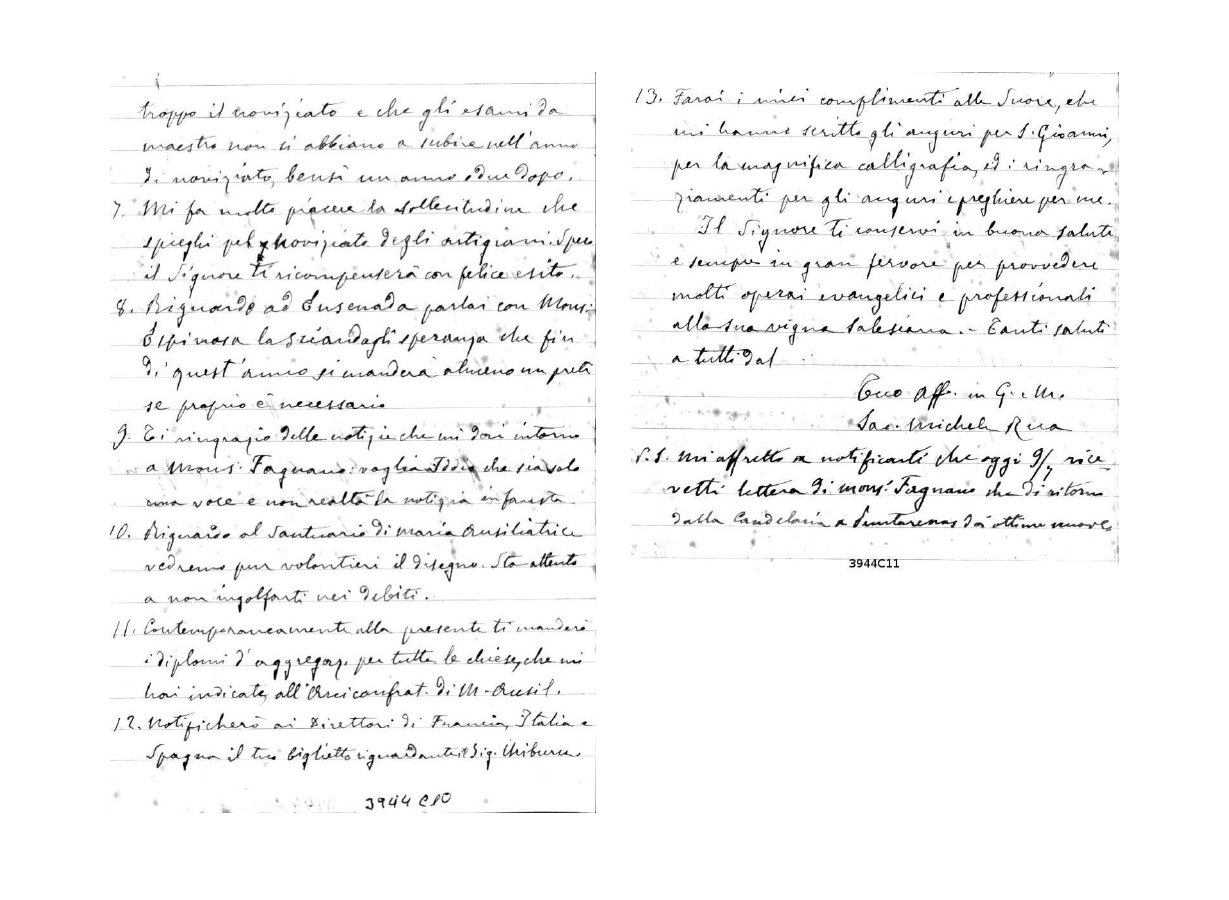 troppo il noviziato e che gli esami da
maestro non si abbiano a subire nell'anno
di noviziato, bensì un anno o due dopo.
7. Mi fa molto piacere la sollecitudine che
spieghi pel noviziato degli artigiani. Spero
il Signore ti ricompenserà con felice esito.
8. Riguardo ad Ensenada parlai con Mons.
Espinosa lasciandogli speranza che fin
di quest'anno si manderà almeno un prete
se proprio è necessario
9. Ti ringrazio delle notizie che mi dai intorno
a Mons. Fagnano: voglia Iddio che sia solo
una voce e non realtà la notizia infausta
10. Riguardo al Santuario di Maria Ausiliatrice
vedremo pur volontieri il disegno. Sta attento
a non ingolfarti nei debiti.
11. Contemporaneamente alla presente ti manderò
i diplomi d'aggregaz. per tutte le chiese, che mi
hai indicate, all'Arciconfrat. di M. Ausil.
12. Notificherò ai Direttori di Francia, Italia e
Spagna il tuo biglietto riguardante il Sig. Uriburu.
3944 C10
13. Farai i miei complimenti alle Suore, che
mi hanno scritto gli auguri per S. Gioanni,
per la magnifica calligrafia, ed i ringra-
ziamenti per gli auguri e preghiere per me.
Il Signore ti conservi in buona salute
e sempre in gran fervore per provvedere
molti operai evangelici e professionali
alla sua vigna Salesiana. - Tanti saluti
a tutti dal
Tuo Aff. in G. e M.
Sac. Michele Rua
P.S. Mi affretto a notificarti che oggi 9/7 rice-
vetti lettera di Mons. Fagnano che di ritorno
dalla Candelaria a Puntarenas dà ottime nuove
3944C11